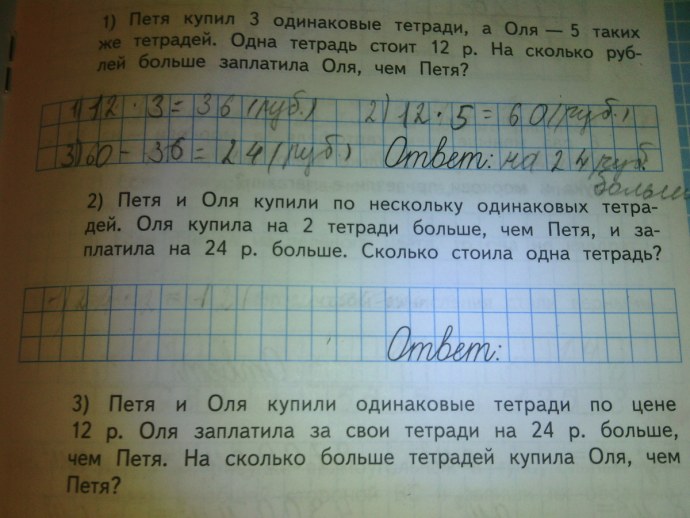 1) Петя купил 3 одинаковые тетради, а Оля — 5 таких
же тетрадей. Одна тетрадь стоит 12 р. На сколько руб-
лей больше заплатила Оля, чем Петя?
1) 12 · 3 = 36 (руб.) 2) 12 · 5 = 60 (руб.)
3) 60 - 36 = 24 (руб.) Ответ: на 24 руб.
больше
2) Петя и Оля купили по нескольку одинаковых тетра-
дей. Оля купила на 2 тетради больше, чем Петя, и за-
платила на 24 р. больше. Сколько стоила одна тетрадь?
Ответ:
3) Петя и Оля купили одинаковые тетради по цене
12 р. Оля заплатила за свои тетради на 24 р. больше,
чем Петя. На сколько больше тетрадей купила Оля, чем
Петя?